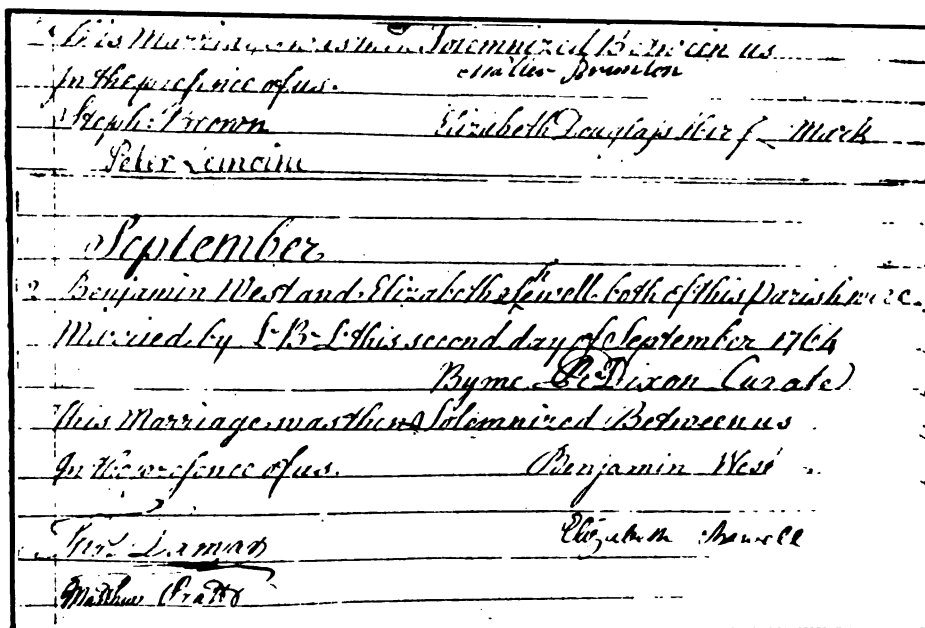 This Marriage was then Solemnized Between us
In the presence of us. Brunton
Steph: Brown Elizabeth Douglass Her Mark
Peter Lemoine
September
2 Benjamin West and Elizabeth Shewell both of this Parish were
Married by L-B-L this second day of September 1764
By me Dixon Curate
This Marriage was then Solemnized Between us
In the presence of us. Benjamin West
Elizabeth Shewell
Matthew Pratt